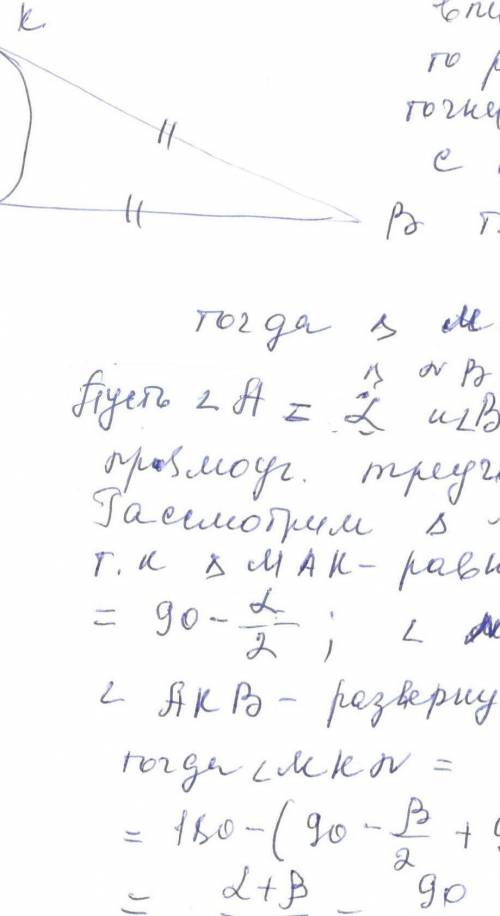 K
впи
то р
точке
с
В т.
тогда Δ М
Δ N В
Пусть ∠A = α и ∠B
прямоуг. треуг
Рассмотрим Δ
т.к Δ МАК - равн
= 90 - α/2 ; ∠
∠ АКВ - разверну
тогда ∠MKN =
= 180 - (90 - β/2 + 9
= α+β = 90